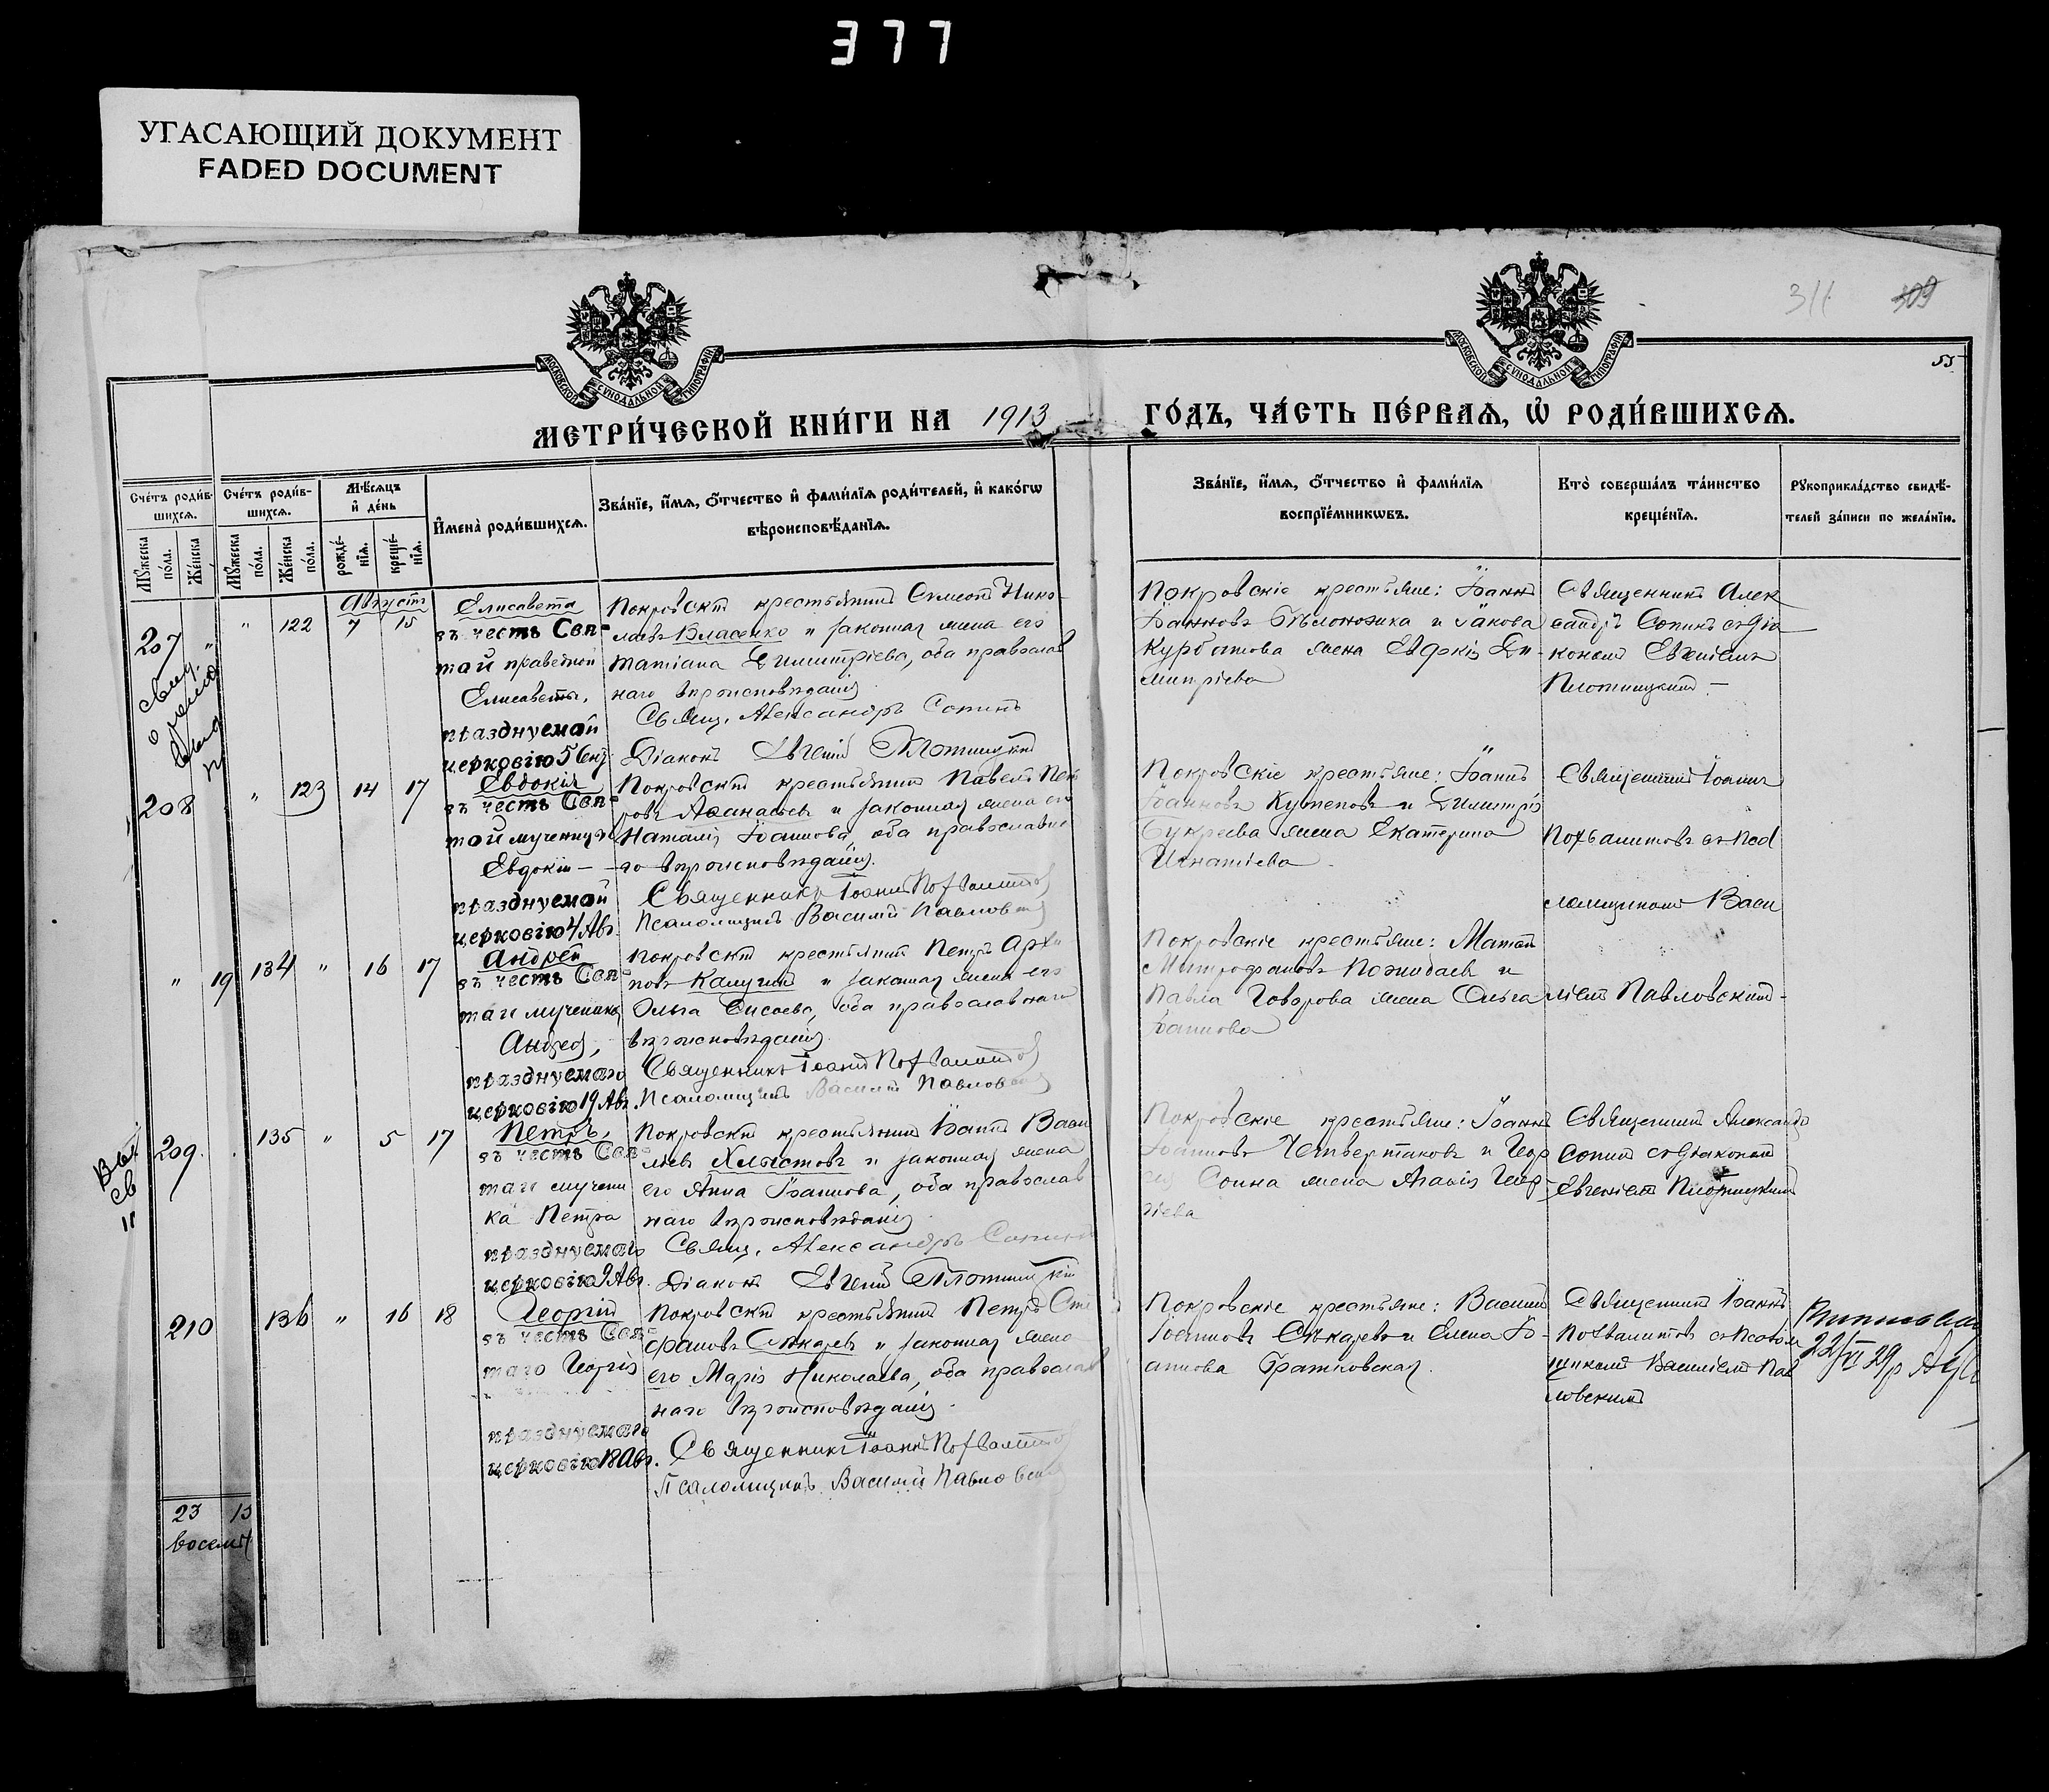 377
УГАСАЮЩИЙ ДОКУМЕНТ
FADED DOCUMENT
311 309
55
МОСКОВСКОЙ СУНОДАЛЬНОЙ ТИПОГРАФІИ
МОСКОВСКОЙ СУНОДАЛЬНОЙ ТИПОГРАФІИ
МЕТРИ́ЧЕСКОЙ КНИ́ГИ НА 1913 ГО́ДЪ, ЧА́СТЬ ПЕ́РВАЯ, Ѡ РОДИ́ВШИХСЯ.
Сче́тъ роди́в-
шихся.
Му́жеска по́ла.
Же́нска
Сче́тъ роди́в-
шихся.
Му́жеска по́ла.
Же́нска по́ла.
Мѣ́сяцъ
и҆ де́нь
рожде́-
нїя.
креще́-
нїя.
И҆мена̀ роди́вшихся.
Зва́нїе, и҆́мя, ѻ҆́тчество и҆ фами́лїя роди́телей, и҆ како́гѡ
вѣроисповѣ́данїя.
Зва́нїе, и҆́мя, ѻ҆́тчество и҆ фами́лїя
воспрїе́мникѡвъ.
Кто̀ соверша́лъ та́инство
креще́нїя.
Рꙋкоприкла́дство свидѣ́-
телей за́писи по жела́нїю.
Августъ
207 " " 122 7 15
Елисавета
въ честь Свя-
той праведной
Елисаветы,
празднуемой
церковію 5 Сент.
Покровскій крестьянинъ Симеонъ Нико-
лаевъ Власенко и законная жена его
Татіана Димитріева, оба православ
наго вѣроисповѣданія
Свящ. Александръ Сопинъ
Діаконъ Евгеній Плотницкій
Покровскіе крестьяне: Іоаннъ
Іоанновъ Бѣлоножка и Іакова
Курбатова жена Евдокія Ди-
митріева
Священникъ Алек
сандръ Сопинъ съ діа
кономъ Евгеніемъ
Плотницкимъ -
208 " 123 14 17
Евдокія
въ честь Свя-
той мученицы
Евдокіи -
празднуемой
церковію 4 Авг.
Покровскій крестьянинъ Павелъ Пет
ровъ Аѳанасьевъ и законная жена его
Наталія Іоаннова, оба православна
го вѣроисповѣданія.
Священникъ Іоаннъ Похвалитовъ
Псаломщикъ Василій Павловскій
Покровскіе крестьяне: Іоаннъ
Іоанновъ Кутеповъ и Димитрія
Букреева жена Екатерина
Игнатіева
Священникъ Іоаннъ
Похвалитовъ съ пса
ломщикомъ Васи
" 19 134 " 16 17
Андрей
въ честь Свя-
таго мученика
Андрея,
празднуемаго
церковію 19 Авг.
Покровскій крестьянинъ Петръ Архи
повъ Калугинъ и законная жена его
Ольга Елисеева, оба православнаго
вѣроисповѣданія
Священникъ Іоаннъ Похвалитовъ
Псаломщикъ Василій Павловскій
Покровскіе крестьяне: Матѳей
Митрофановъ Пожидаевъ и
Павла Говорова жена Ольга
Іоаннова
ліемъ Павловскимъ -
209. 135 " 5 17
Петръ,
въ честь Свя-
таго мучени
ка Петра
празднуемаго
церковію 9 Авг.
Покровскій крестьянинъ Іоаннъ Васи
льевъ Хлыстовъ и законная жена
его Анна Іоаннова, оба православ
наго вѣроисповѣданія
Свящ. Александръ Сопинъ
Діаконъ Евгеній Плотницкій
Покровскіе крестьяне: Іоаннъ
Іоанновъ Четвертаковъ и Геор
гія Сопина жена Агаѳія Геор-
гіева
Священникъ Александръ
Сопинъ съ діакономъ
Евгеніемъ Плотницкимъ
210 136 " 16 18
Георгій
въ честь Свя-
таго Георгія
празднуемаго
церковію 18 Авг.
Покровскій крестьянинъ Петръ Сте
фановъ Слюкаревъ и законная жена
его Марія Николаева, оба православ
наго вѣроисповѣданія.
Священникъ Іоаннъ Похвалитовъ
Псаломщикъ Василій Павловскій
Покровскіе крестьяне: Василій
Іоанновъ Слюкаревъ и Елена Іо-
аннова Братковская.
Священникъ Іоаннъ
Похвалитовъ съ псалом
щикомъ Василіемъ Пав
ловскимъ
22/VI 29 р
23 15
восемь